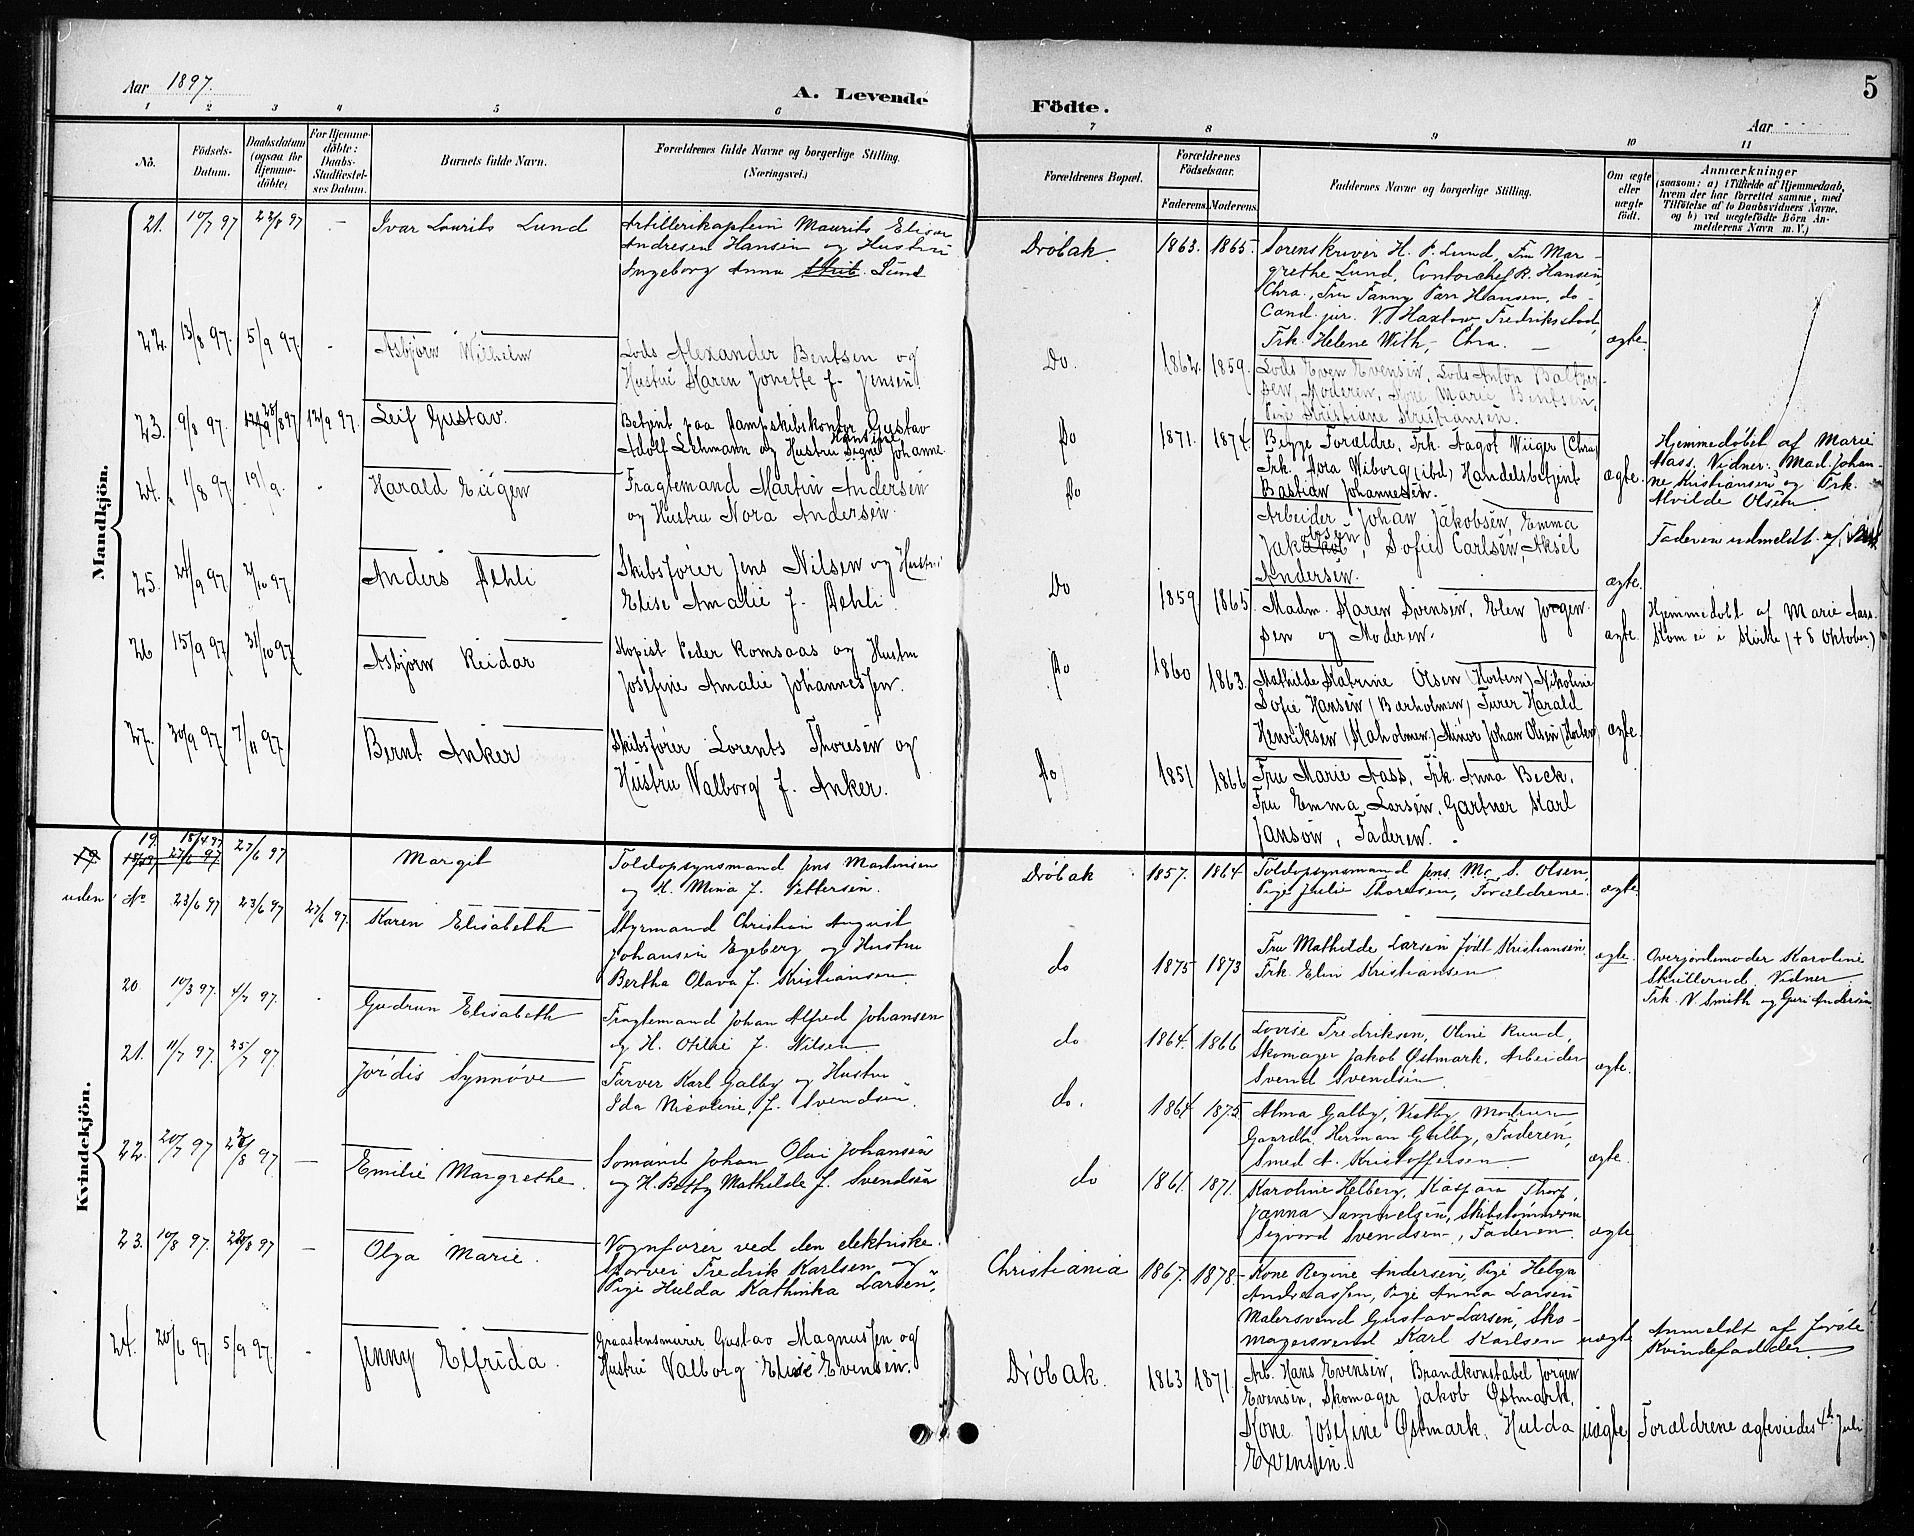 Aar 1897.
A. Levende
Födte.
Aar
5
1 2 3 4 5 6
7 8 9 10 11
No.
Födsels-Datum.
Daabsdatum (ogsaa for Hjemme-döbte)
For Hjemme-döbte: Daabs-Stadfæstel-ses Datum.
Barnets fulde Navn.
Forældrenes fulde Navne og borgerlige Stilling.
(Næringsvei.)
Forældrenes Bopæl.
Forældrenes Födselsaar.
Faderens. Moderens.
Faddernes Navne og borgerlige Stilling.
Om ægte eller uægte födt.
Anmærkninger
(saasom: a) i Tilfælde af Hjemmedaab, hvem der har forrettet samme, med Tilföielse af to Daabsvidners Navne, og b) ved uægtefödte Börn An-melderens Navn m. V.)
Mandkjön.
21. 10/7 97 22/8 97 - Ivar Laurits Lund
Artillerikaptein Maurits Elisar
Andresen Hansen og Hustru
Ingeborg Anna Lund
Drøbak 1863. 1865.
Sorenskriver H. P. Lund, Fru Mar-
grethe Lund, Contorchef R. Hansen,
Chra., Fru Fanny Parr Hansen, do -
Cand. jur. V. Haxlow Fredriksstad,
Frk. Helene With, Chra. -
ægte.
22. 13/8 97. 5/9 97. - Asbjørn Wilhelm
Lods Alexander Bentsen og
Hustru Karen Jonette f. Jensen.
Do. 1862. 1859.
Lods Even Evensen, Lods Anton Baltzer-
sen, Moderen, Kone Marie Bentsen,
Pige Kristiane Kristiansen.
23. 9/8 97. 28/8 97 12/9 97. Leif Gustav.
Betjent paa Dampskibskontor Gustav
Adolf Lehmann og Hustru Signe Johanne
Hansine
Do 1871. 1874.
Begge Forældre, Frk. Fagot Wiiger (Chra)
Frk. Dora Wiborg (ibd) Handelsbetjent
Bastian Johannesen.
ægte.
Hjemmedøbt af Marie
Aass, Vidner: Mad. Johan-
ne Kristiansen og Frk.
Alvilde Olsen.
24. 1/8 97 19/9. - Harald Eugen
Fragtemand Martin Andersen
og Hustru Nora Andersen.
Do
Arbeider Johan Jakobsen, Emma
Jakobsen, Sofie Carlsen, Aksel
Andersen.
ægte.
Faderen udmeldt af
25. 24/9 97 2/10 97 Anders Dehli
Skibsfører Jens Nilsen og Hustru
Elise Amalie f. Dehli.
Do 1859 1865
Madm. Karen Svensen, Elen Jorgen-
sen og Moderen.
ægte.
Hjemmedøbt af Marie Aass.
Kom ei i Kirke († 8 Oktober)
26 15/9 97 31/10 97 Asbjørn Reidar
Kopist Peder Romsaas og Hustru
Josefine Amalie Johannessen.
Do 1860 1863.
Mathilde Katrine Olsen (Horten) Nikoline
Sofie Hansen (Barholmen) Furer Harald
Henriksen (Kaholmen) Minør Johan Olsen (Horten)
ægte.
27. 30/9 97 7/11 97. Bernt Anker
Skibsfører Lorents Thoresen og
Hustru Valborg f. Anker.
Do 1851 1866
Fru Marie Aass, Frk. Anna Beck,
Fru Emma Larsen, Gartner Karl
Janson, Faderen.
Kvindekjön.
19 19. 15/4 97 27/6 97 27/6 97 Margit
Toldopsynsmand Jens Martinsen
og H. Mina f. Pettersen.
Drøbak 1857. 1864
Toldopsynsmand Jens Mc. S. Olsen,
Pige Julie Thoresen, Forældrene.
ægte.
uden No 23/6 97 23/6 97 27/6 97. Karen Elisabeth
Styrmand Christian August
Johansen Egeberg og Hustru
Bertha Olava f. Kristiansen.
do 1875 1873
Fru Mathilde Larsen født Kristiansen.
Frk. Elin Kristiansen
ægte.
Overjordemoder Karoline
Skullerud. Vidner:
Frk. V. Smith og Guri Andersen
20. 10/3 97. 4/7 97. - Gudrun Elisabeth
Fragtemand Johan Alfred Johansen
og H. Otilie f. Nilsen.
do 1864. 1866
Lovise Fredriksen, Oline Rund,
Skomager Jakob Østmark, Arbeider
Svend Svendsen.
ægte.
21. 11/7 97. 25/7 97. Jordis Synnøve
Farver Karl Galby og Hustru
Ida Nicoline, f. Svendsen.
do. 1864 1875
Alma Galby, Vestby, Moderen
Gaardbr. Herman Galby, Faderen,
Smed A. Kristoffersen
ægte.
22. 20/7 97 /8 97 - Emilie Margrethe.
Sømand Johan Olai Johansen
og H. Betty Mathilde f. Svendsen
do 1861. 1871.
Karoline Helberg, Kaspara Thorp,
Janna Samuelsen, Skibstømmerm
Sigvard Svendsen, Faderen.
ægte.
23. 10/8 97. /8 97 - Olga Marie.
Vognfører ved den elektriske
Sporvei Fredrik Karlsen og
Pige Hulda Kathinka Larsen.
Christiania 1867. 1878.
Kone Regine Andersen, Pige Helga
Andreassen, Pige Anna Larsen
Malersvend Gustav Larsen, Sko-
magersvend Karl Karlsen
uægte
Anmeldt af første
Kvindefadder.
24. 20/6 97. 5/9 97. - Jenny Elfrida.
Graastensmurer Gustav Magnussen og
Hustru Valborg Elise Evensen.
Drøbak. 1863 1871.
Arb. Hans Evensen, Brandkonstabel Jørgen
Evensen, Skomager Jakob Østmark,
Kone Josefine Østmark, Hulda
Evensen.
uægte
Forældrene ægteviedes 4de Juli